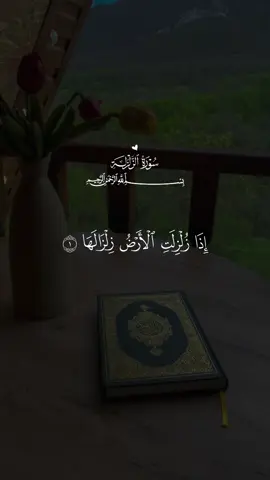 سُورَةُ الزَّلْزَلَةِ
بِسْمِ اللَّهِ الرَّحْمَٰنِ الرَّحِيمِ
إِذَا زُلْزِلَتِ ٱلْأَرْضُ زِلْزَالَهَا ١